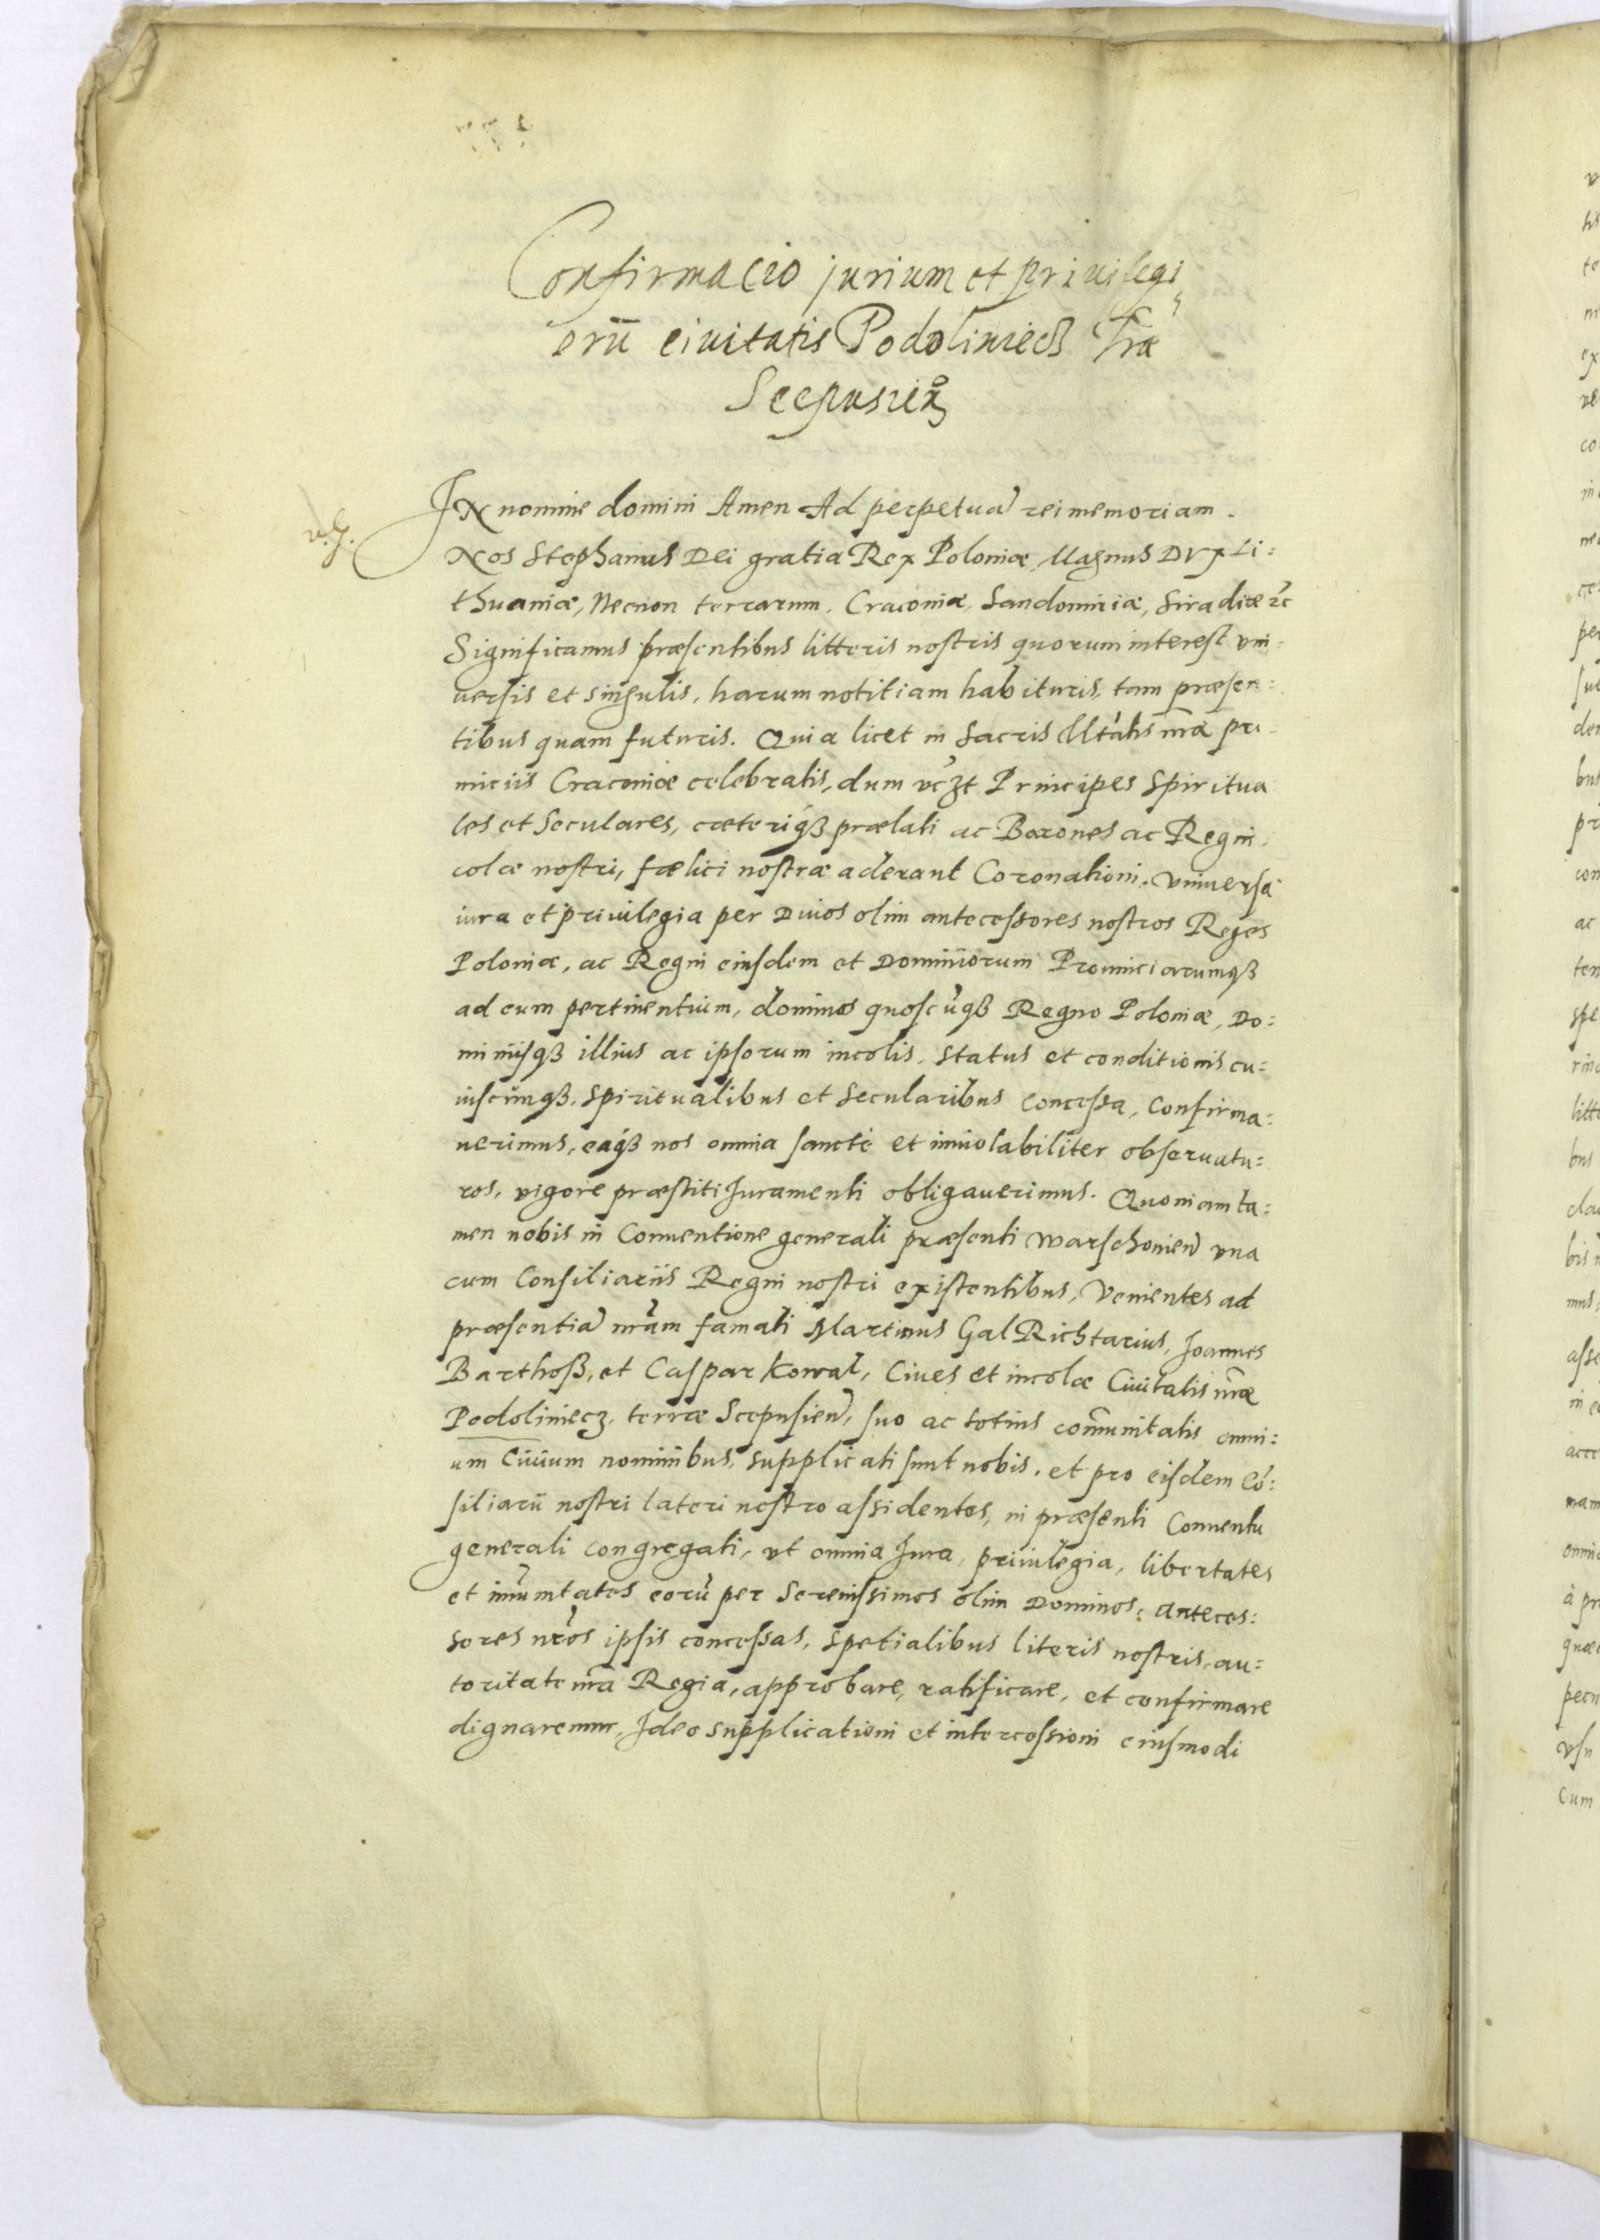 Confirmacio jurium et privilegi
orū civitatis Podoliniecz Trae
Scepusien̄
JN nomine domini Amen Ad perpetuā rei memoriam.
Nos Stephanus Dei gratia Rex Poloniæ, Magnus Dvx Li=
thuaniæ, Necnon terrarum, Cracoviæ, Sandomiriæ, Siradiæ ꝛc
Significamus præsentibus litteris nostris quorum interest vni-
versis et singulis, harum notitiam habituris, tam præsen=
tibus quam futuris. Quia licet in sacris Mtātis nr̄æ pri-
miciis Cracoviæ celebratis, dum vczt Principes Spiritua
les et Seculares, cæteriqȝ prælati ac Barones ac Regni-
colæ nostri, fælici nostræ aderant Coronationi, vniversa
iura et privilegia per Divos olim antecessores nostros Reges
Poloniæ, ac Regni eiusdem et Dominiorum Provinciarumqȝ
ad eum pertinentium, dominos quoscūqȝ Regno Poloniæ, Do=
miniisqȝ illius ac ipsorum incolis, status et conditionis cu=
iuscūnqȝ, Spiritualibus et Secularibus concessa, confirma=
uerimus, eaqȝ nos omnia sanctè et inviolabiliter obseruatu=
ros, vigore præstiti Juramenti obligauerimus. Quoniam ta=
men nobis in Conventione generali præsenti Warschovien̄ vna
cum Consiliariis Regni nostri existentibus, Venientes ad
præsentiā nr̄am famati Martinus Gal Richtarius, Joannes
Barthoß, et Caspar Kowal, Ciues et incolæ Ciuitatis nr̄æ
Podoliniecz, terræ Scepusien̄, suo ac totius com̄unitatis omni=
um Civium nominibus, supplicati sunt nobis, et pro eisdem Cō=
siliarii nostri lateri nostro assidentes, in præsenti Conventu
generali congregati, vt omnia Jura, privilegia, libertates
et im̄unitates eorū per Serenissimos olim Dominos, anteces=
sores nr̄os ipsis concessas, spetialibus literis nostris, au=
toritate nr̄a Regia, approbare, ratificare, et confirmare
dignaremur, Ideo supplicationi et intercessioni eiusmodi